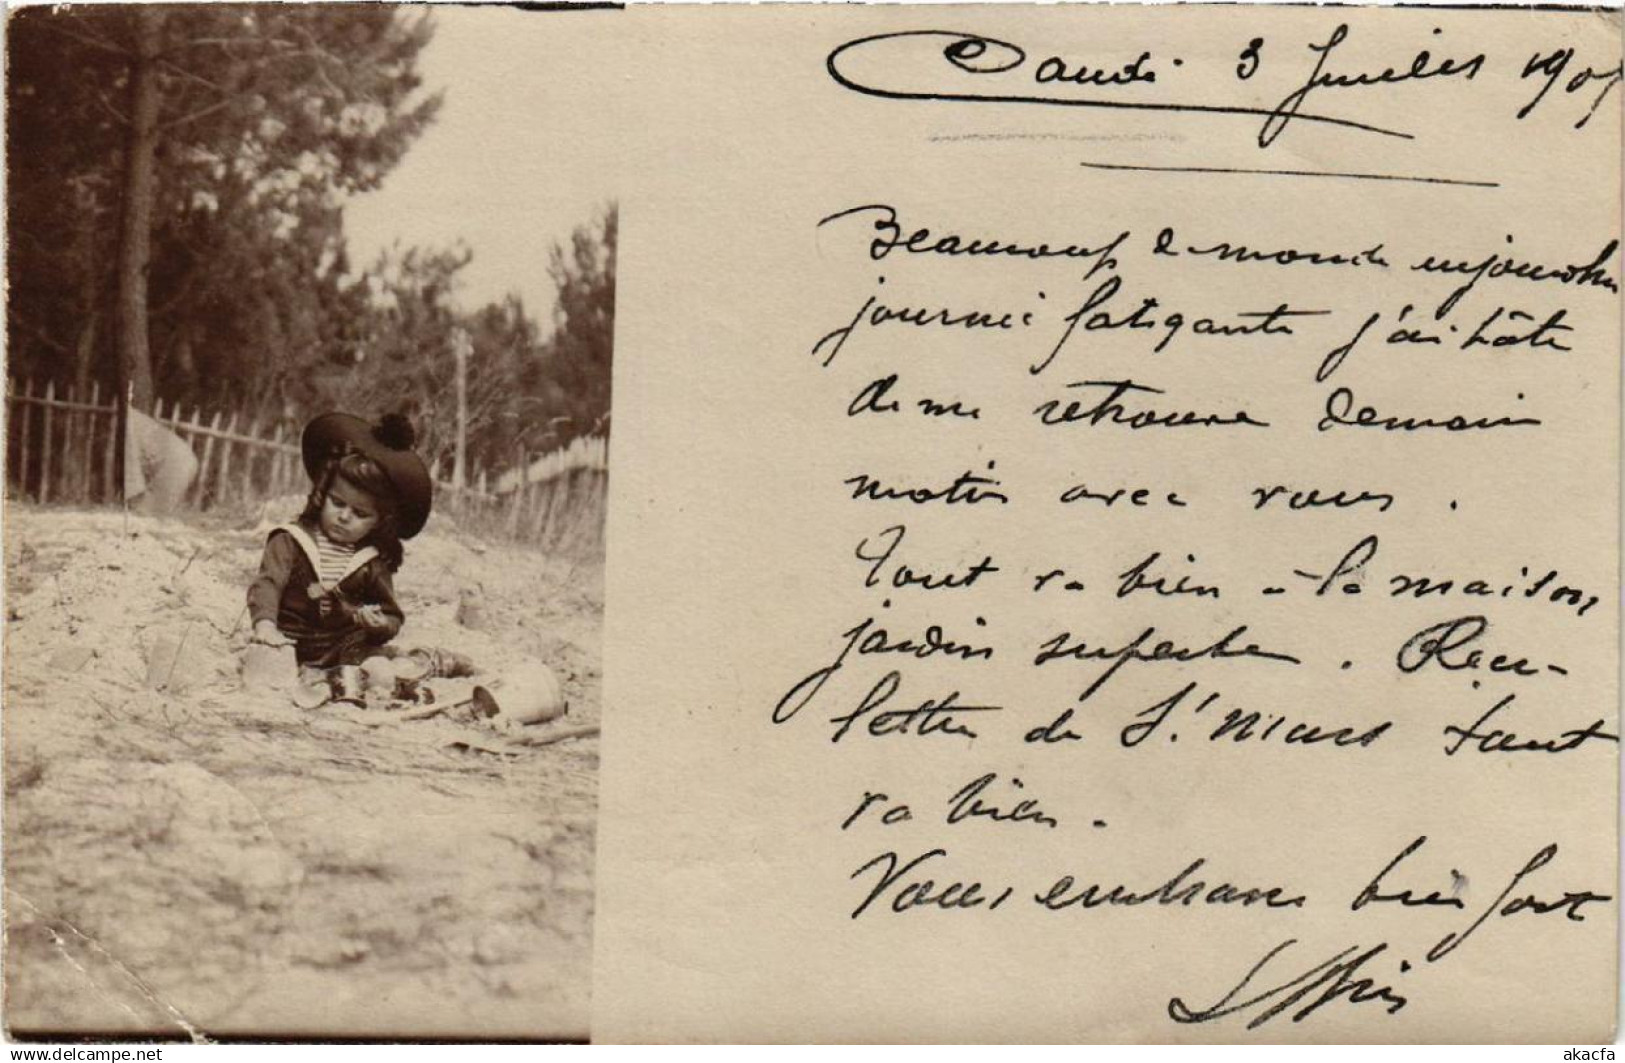 3 Juillet 190
Beaucoup de monde aujourd'hui
journée fatigante j'ai hâte
de me retrouver demain
matin avec vous.
Tout va bien à la maison,
jardin superbe. Reçu
lettre de St. tout
va bien.
Vous embrasse bien fort
www.delcampe.net
akacfa